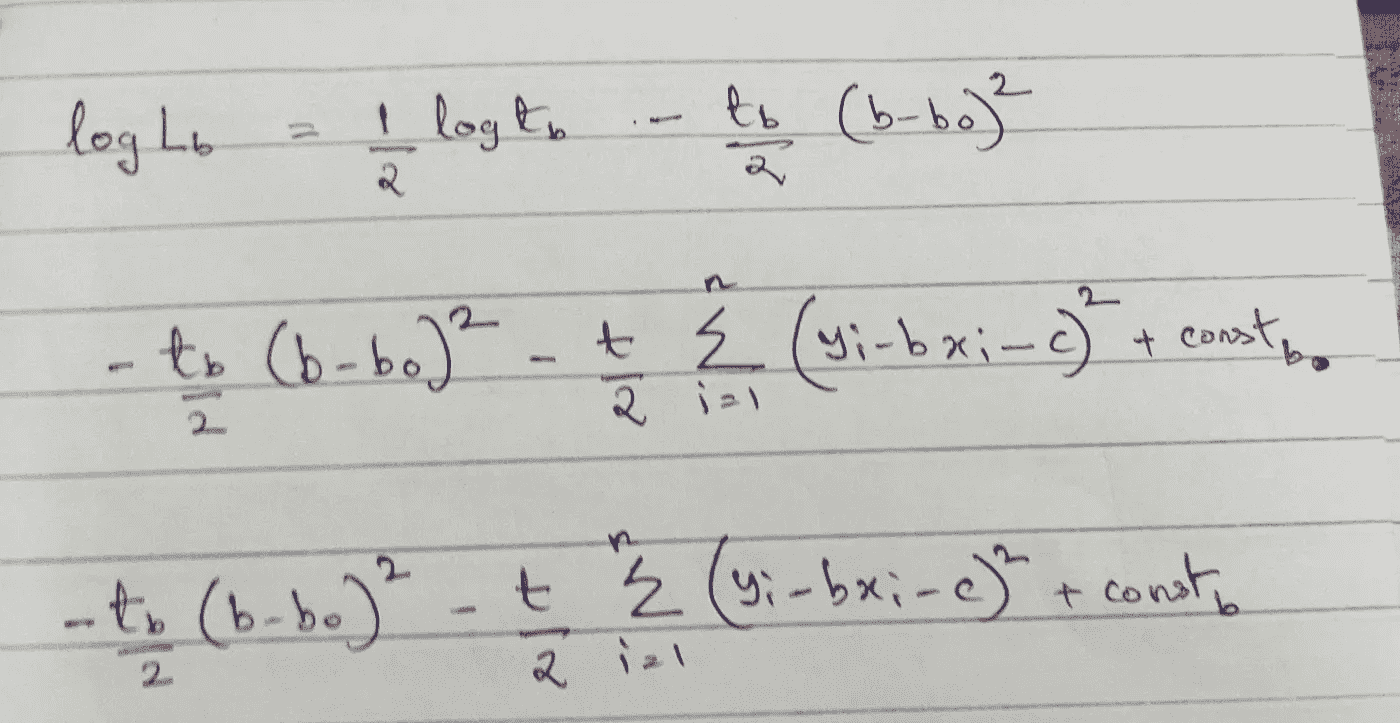 log L_b = 1/2 log t_b - t_b/2 (b-b_0)^2
- t_b/2 (b-b_0)^2 - t/2 Σ_{i=1}^{n} (y_i-bx_i-c)^2 + const_b.
- t_b/2 (b-b_0)^2 - t/2 Σ_{i=1}^{n} (y_i-bx_i-c)^2 + const_b